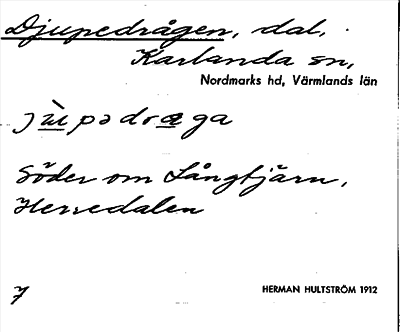 Djupedrågen, dal,
Karlanda sn,
Nordmarks hd, Värmlands län
jùpədrαga
Söder om Långtjärn,
Herredalen
7
HERMAN HULTSTRÖM 1912